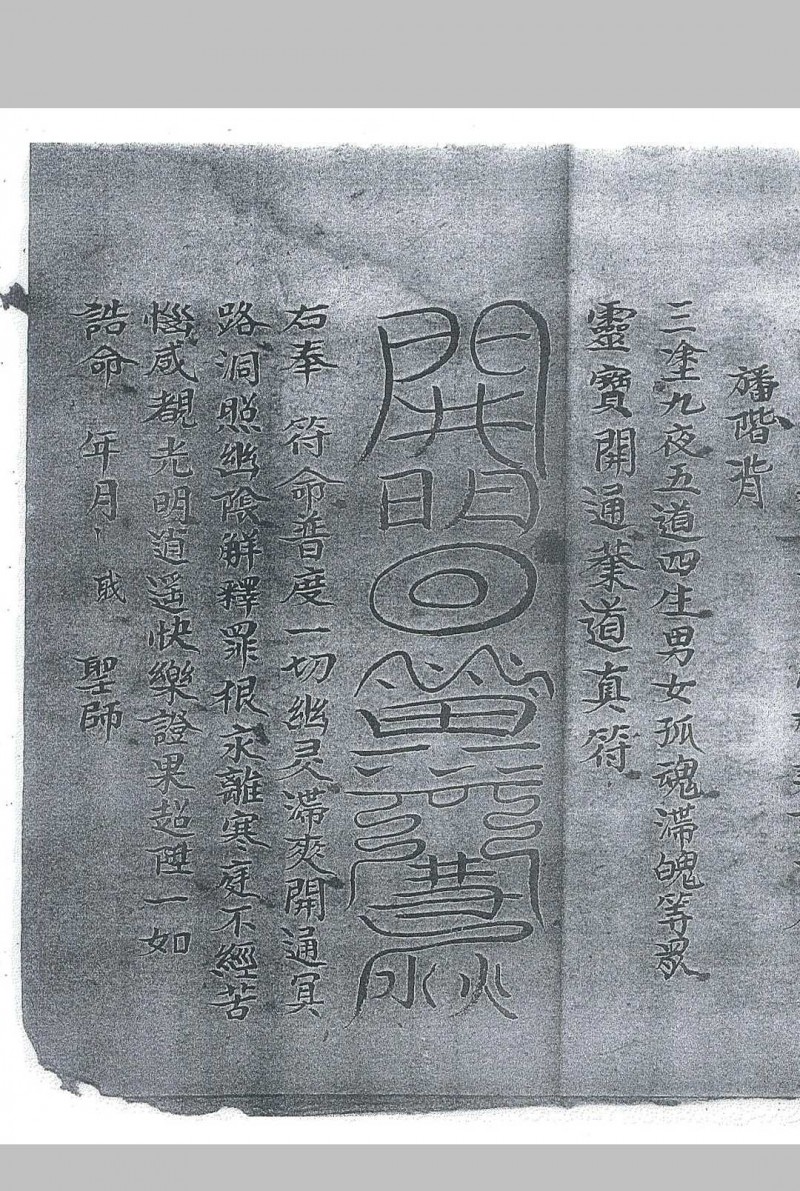 旛階背
三塗九夜五道四生男女孤魂滯魄等眾
靈寶開通業道真符
右奉　符命普度一切幽灵滯爽開通冥
路洞照幽隂解釋罪根永離寒庭不經苦
惱咸覩光明逍遥快樂證果超陞一如
誥命　年月　聖師